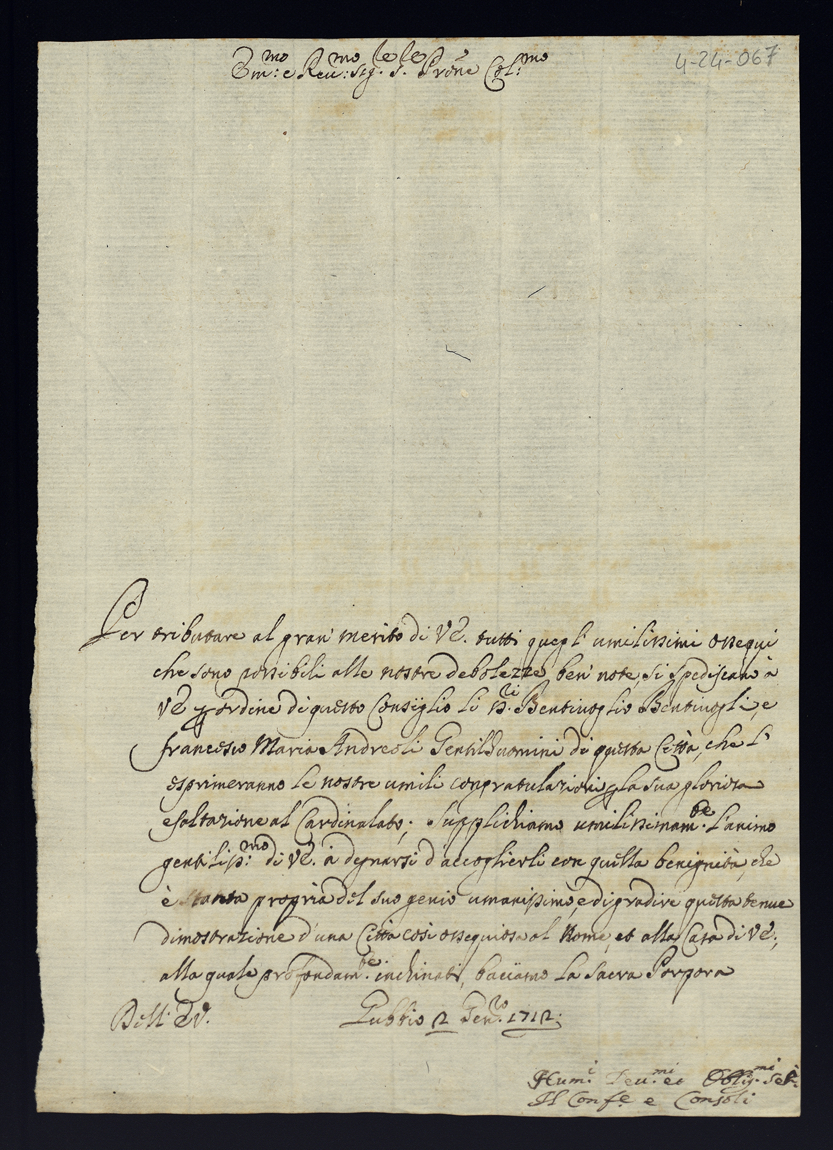 Em:mo e Reu:mo Sig.re S.re Prõne Col:mo
4-24-067
Per tributare al gran merito di VE. tutti quegl'umilissimi ossequi
che sono possibili alle nostre debolezze ben note, si spediscano à
VE per ordine di questo Consiglio li SS.ri Bentiuoglio Bentiuogli, e
francesco Maria Andreoli Gentilduomini di questa Città, che l'
esprimeranno le nostre umili congratulazioni per la sua gloriosa
esaltazione al Cardinalato; Supplichiamo umilissinam.te l'animo
gentiliss:mo di VE. à degnarsi d'accoglierli con quella benignità, che
è stanta propria del suo genio umanissimo, e di gradire questa tenue
dimostrazione d'una Città così ossequiosa al Nome, et alla Casa di VE.,
alla quale profondam.te inchinati, baciamo la Sacra Porpora
Dell' EV. Gubbio 2 Gen.ro 1712:
Hum.i Deu.mi et Oblig.mi Se.ri
Il Conf.e e Consoli